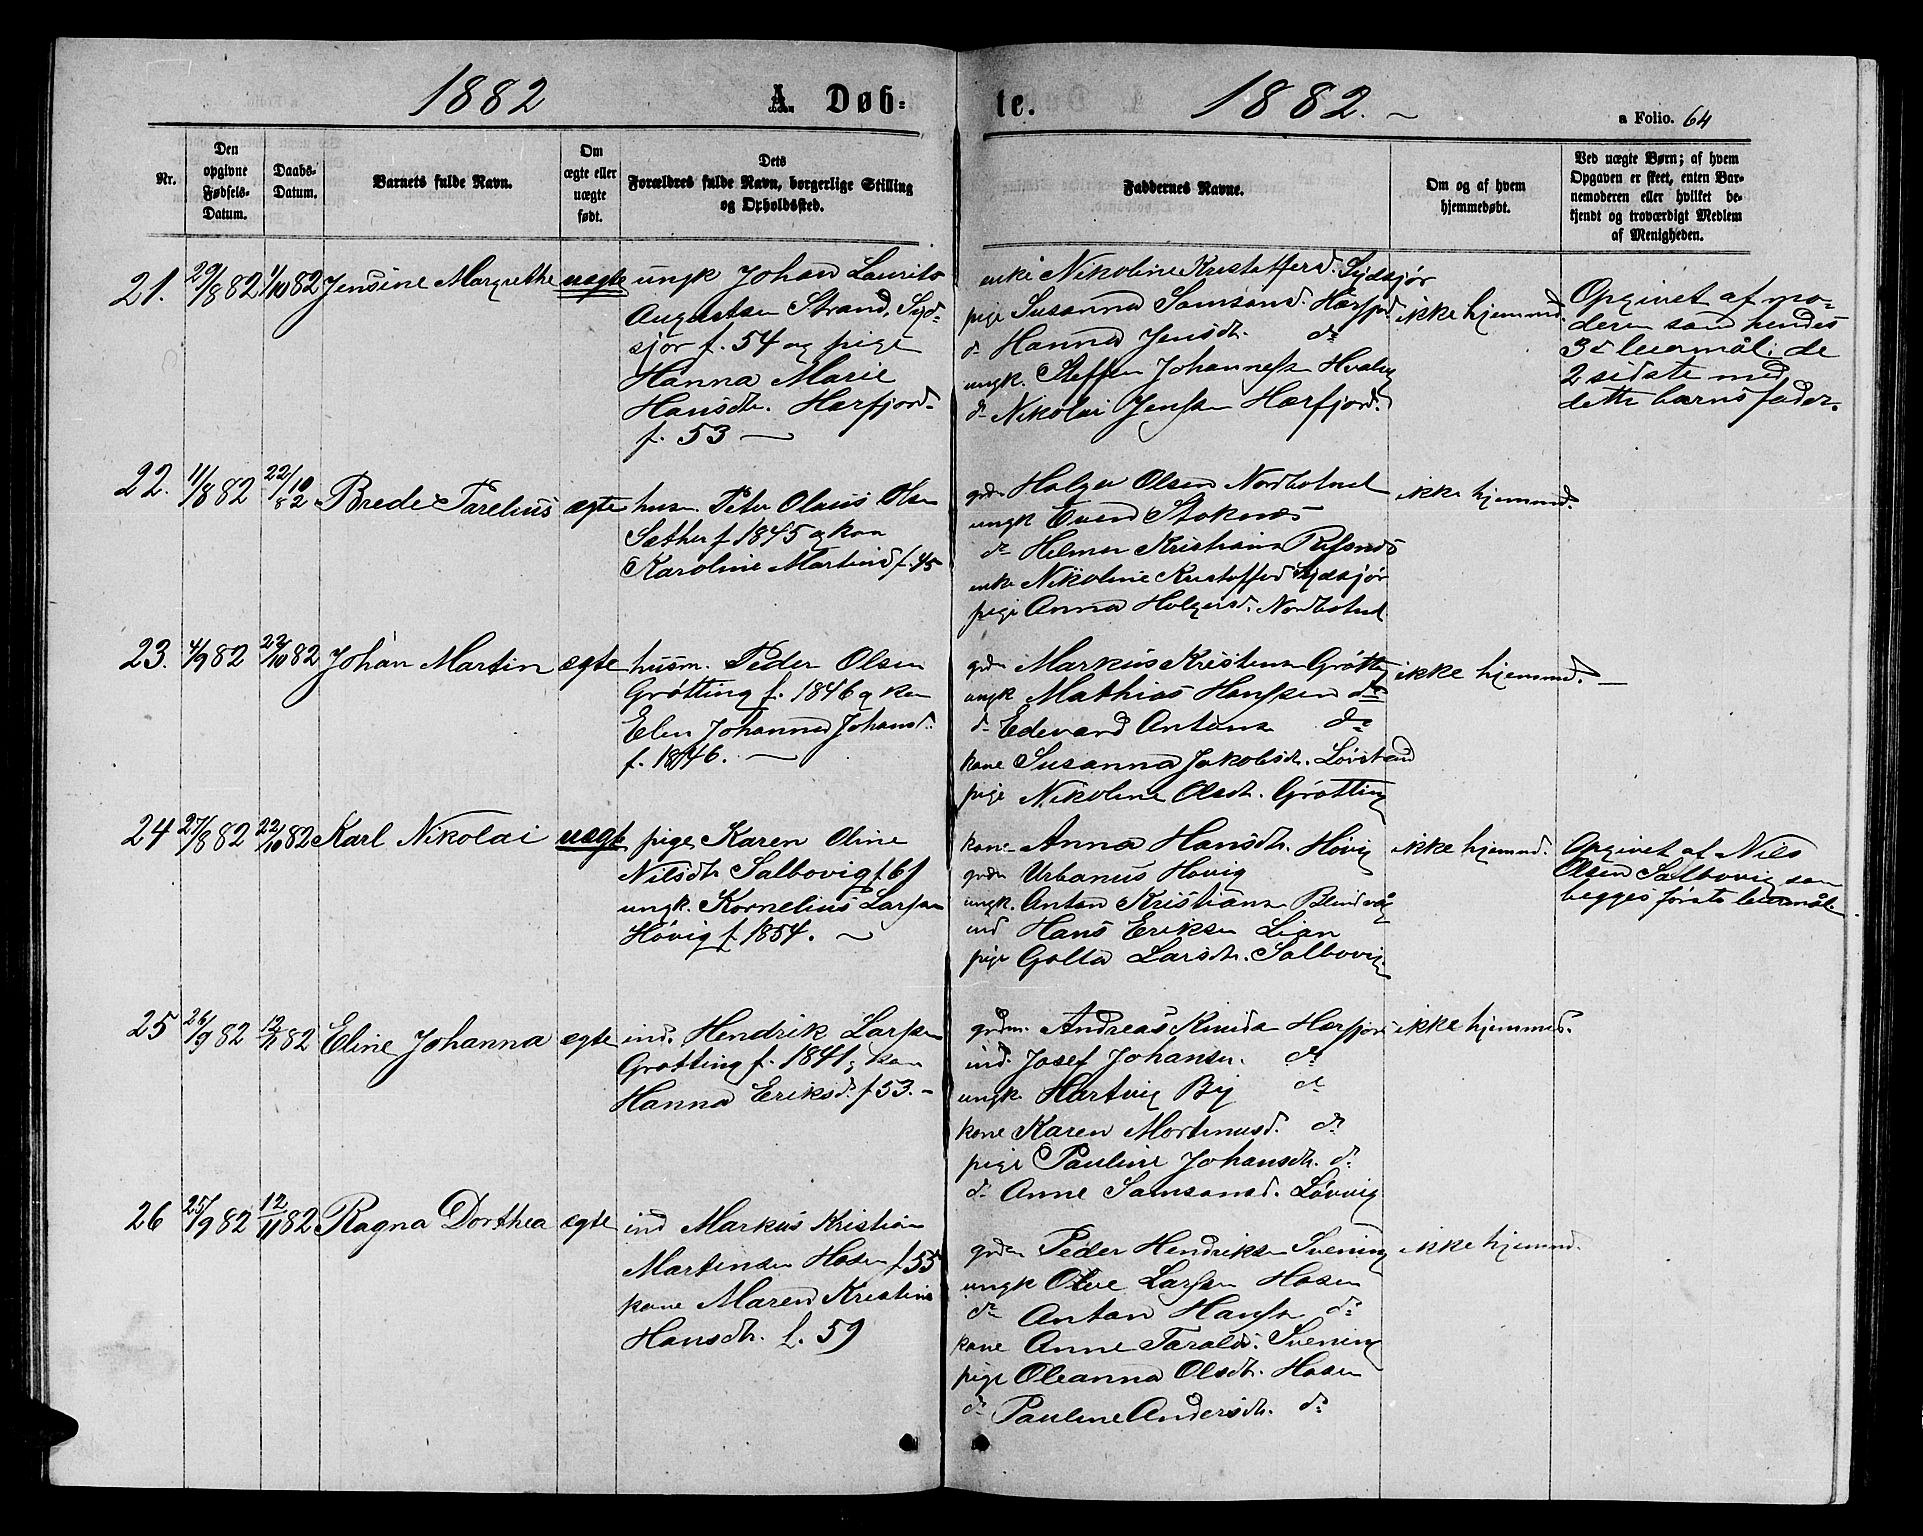 1882 A. Døb-
te. 1882.
a Folio. 64
Nr.
Den opgivne Fødsels-Datum.
Daabs-Datum.
Barnets fulde Navn.
Om ægte eller uægte født.
Dets Forældres fulde Navn, borgerlige Stilling og Opholdssted.
Faddernes Navne.
Om og af hvem hjemmedøbt.
Ved uægte Børn; af hvem Opgaven er skeet, enten Barnemoderen eller hvilket bekjendt og troværdigt Medlem af Menigheden.
21. 29/8 82 1/10 82 Jensine Margrethe uægte
ungk Johan Laurits
Augustsen Strand, Syd-
sjør f. 54 og pige
Hanna Marie
Hansdtr. Hærfjord
f. 53 —
enke Nikoline Kristofferd. Sydsjør
pige Susanna Samsond. Hærfjord
do Hanna Jensdtr. do
ungk. Steffen Johannessen
do Nikolai Jenssen Hærfjord.
ikke hjemmd.
Opgivet af mo-
deren som hendes
3die leiermål; de
2 sidste med
dette barns fader.
22. 11/8 82 22/10 82 Brede Parelius ægte
husm. Peter Olaus Olsen
Sæther f 1845 og kon
Karoline Martind f. 45
grdm Holger Olsen Nordbotnet
ungk Even Stoknes
do Helmer Kristiansen Refsnes
enke Nikoline Kristofferd Sydsjør
pige Anna Holgersd. Nordbotnet
ikke hjemmd.
23. 4/9 82 22/10 82 Johan Martin ægte
husm. Peder Olsen
Grøtting f. 1846 og kon
Elen Johanna Johansd.
f. 1846. —
grdm Markus Kristensen Grøtting
ungk Mathias Hanssen do
do Edevard Antons do
kone Susanna Jakobsdtr. Løvstrand
pige Nikoline Olsdtr. Grøtting
ikke hjemmd. —
24 27/8 82 22/10 82 Karl Nikolai uægt
pige Karen Oline
Nilsdtr Salbovig f. 61
ungk. Kornelius Larssen
Høvig f. 1854. —
kone Anna Hansdtr. Høvig
grdm Urbanus Høvig
ungk. Anton Kristiansen Blindvåg
ind Hans Eriksen Lian
pige Golla Larsdtr. Salbovig.
ikke hjemmd.
Opgivet af Nils
Olsen Salbovig som
begges første leiermål.
25 26/9 82 12/11 82 Eline Johanna ægte
ind. Hendrik Larssen
Grøtting f. 1841 og kon
Hanna Eriksd. f 53. —
grdm. Andreas Knuds Hærfjord
ind. Josef Johansen. do
ungk. Hartvig By do
kone Karen Mortinusd. do
pige Pauline Johansdtr. do
do Anne Samsonsd. Løvvig
ikke hjemmed.
26 25/9 82 12/11 82 Ragna Dorthea ægte
ind Markus Kristian
Martinsen Hosen f 55
kone Maren Kristine
Hansdtr. f. 59
grdm Peder Hendriksen Svening
ungk Olve Larssen Hosen
do Anton Hanssen do
kone Anne Taralds. Svening
pige Oleanna Olsdtr. Hosen
do Pauline Andersdtr. do
ikke hjemmd.